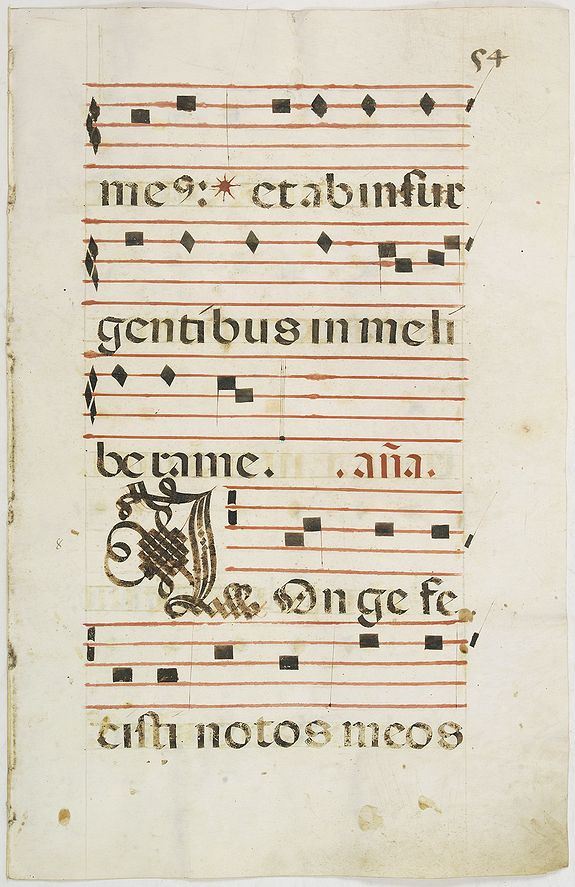 54
me9:* et ab insur
gentibus in me li
bera me. .aña.
LOnge fe
cisti notos meos